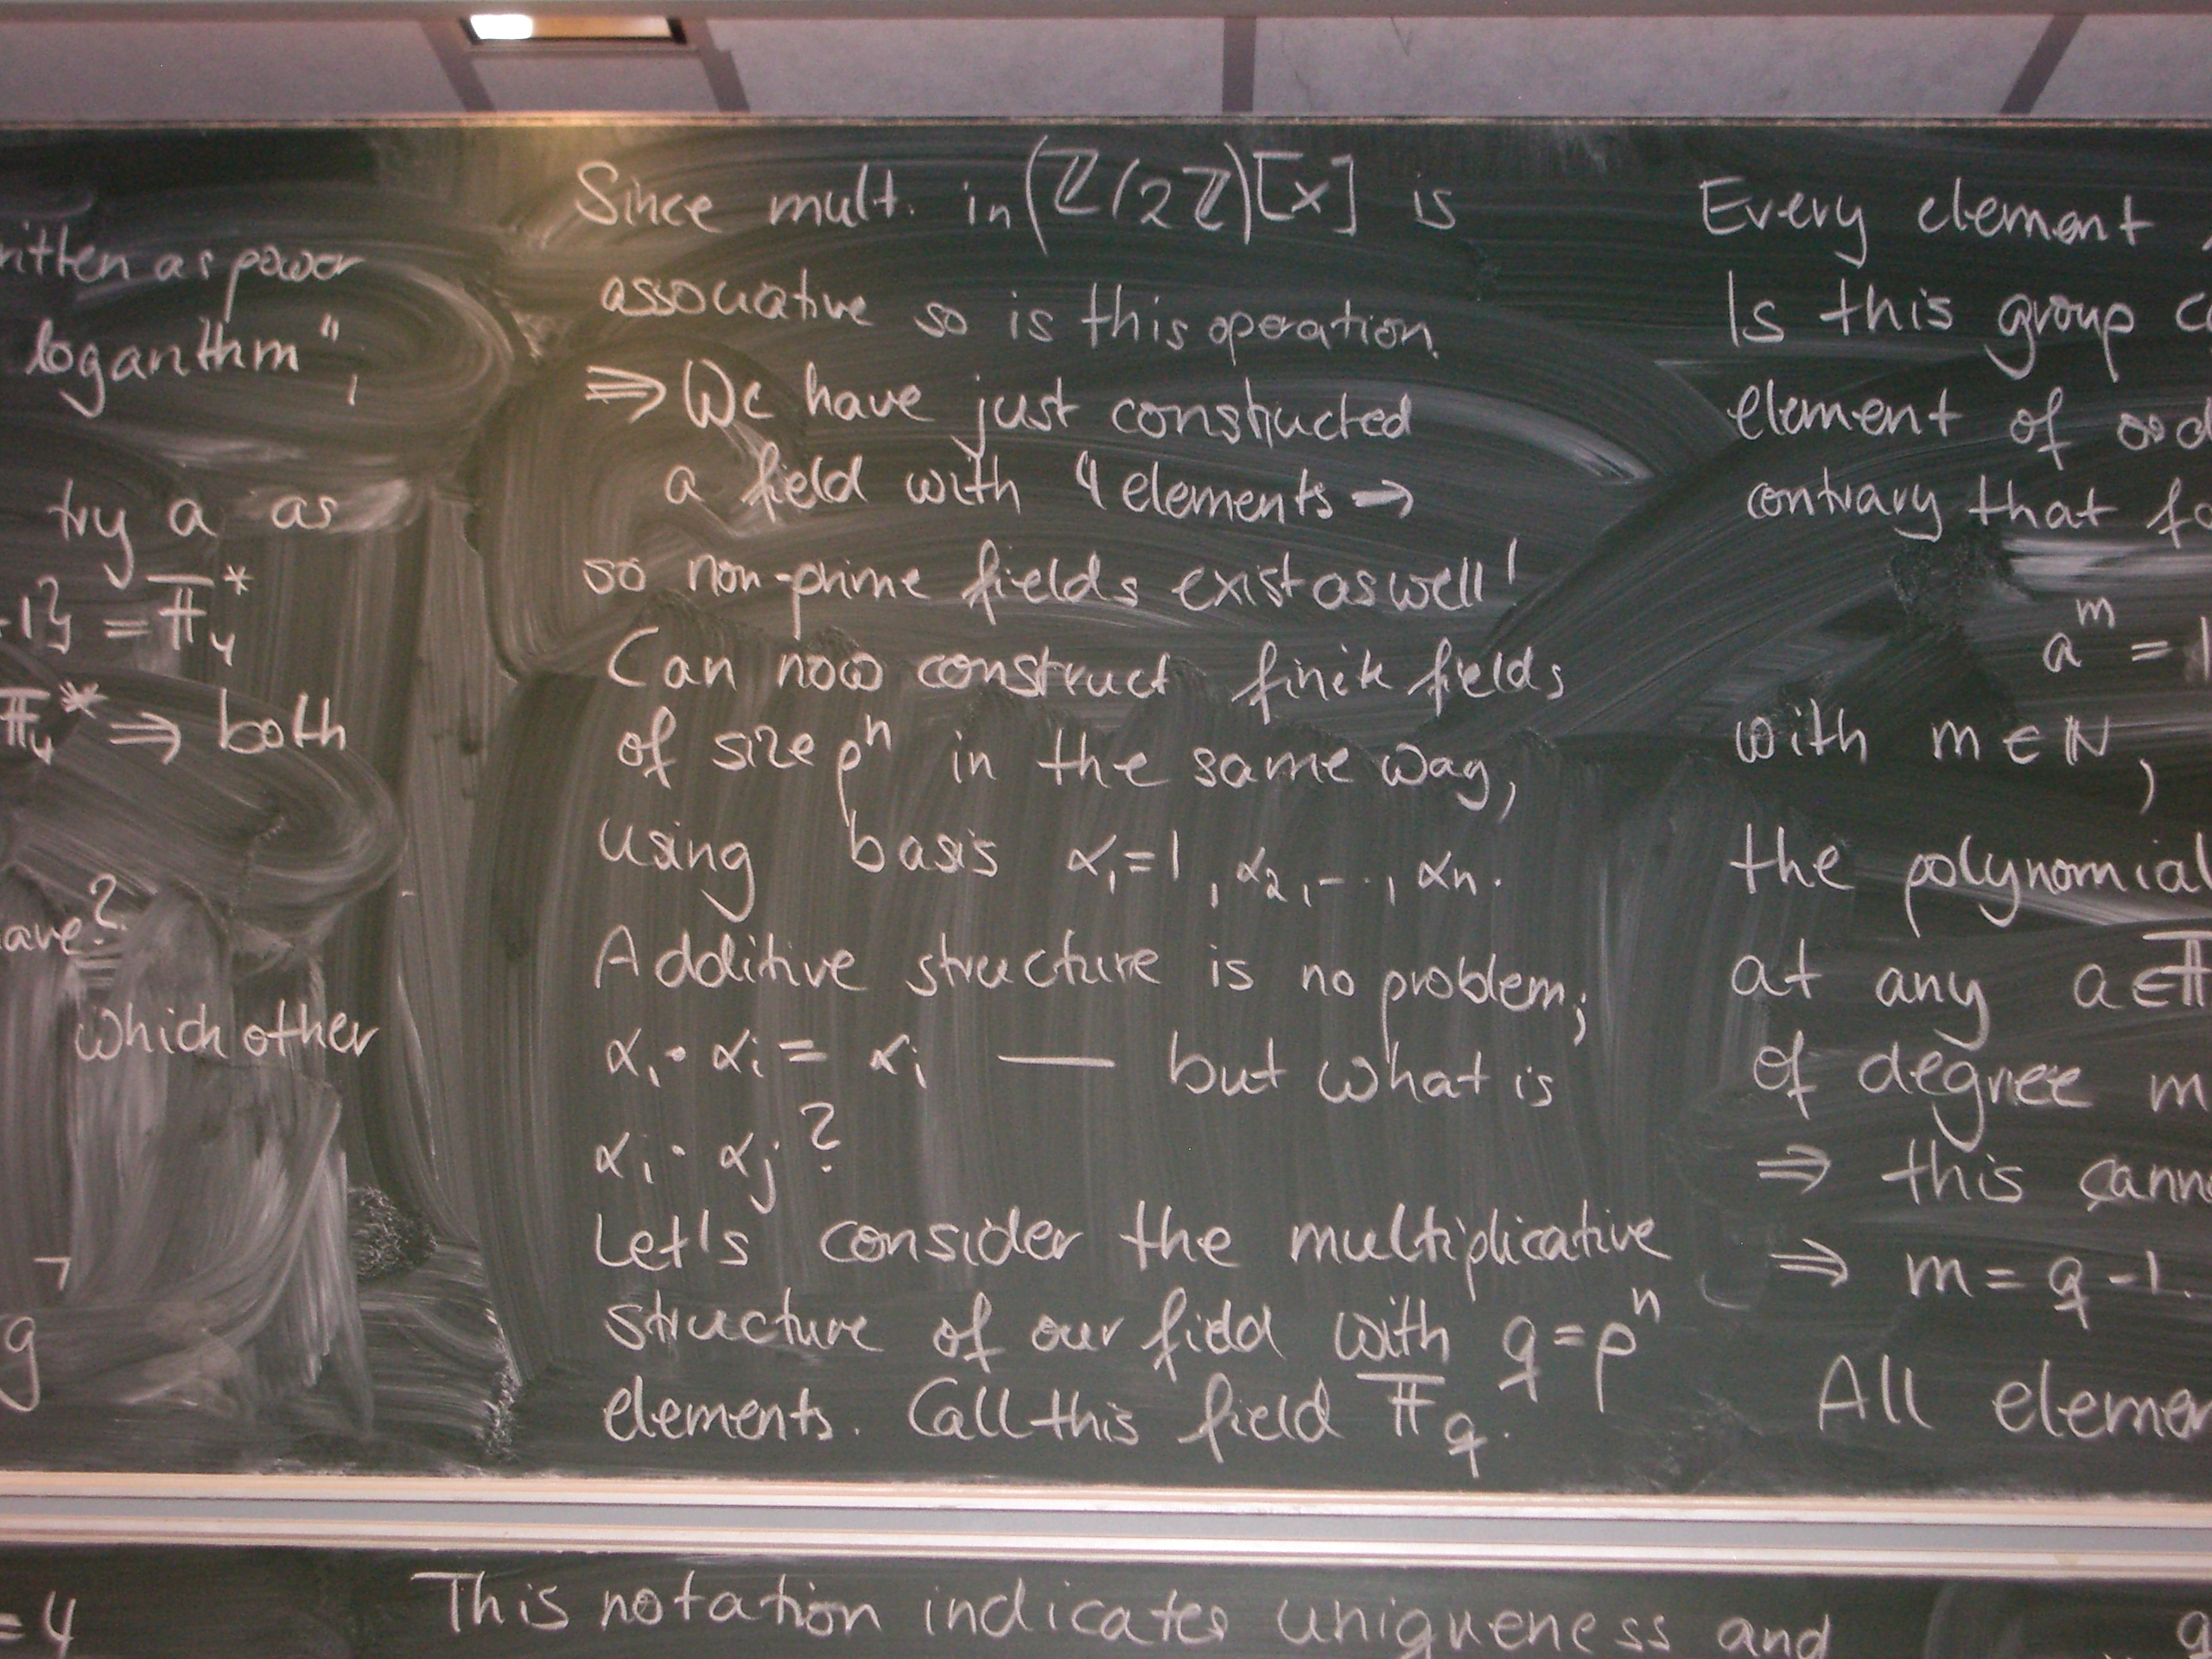 ritten as power
logarithm",
try a as
-1} = 𝔽₄*
𝔽₄* ⇒ both
ave?
which other
g
Since mult. in (ℤ/2ℤ)[x] is
associative so is this operation.
⇒ We have just constructed
a field with 4 elements →
so non-prime fields exist as well!
Can now construct finite fields
of size pⁿ in the same way,
using basis α₁=1, α₂, -··, αn.
Additive structure is no problem;
α₁·αi = αi — but what is
αi·αj?
Let's consider the multiplicative
structure of our field with q=pⁿ
elements. Call this field 𝔽q.
Every element
Is this group c
element of ord
contrary that fo
aᵐ = 1
with m ∈ ℕ,
the polynomial
at any a ∈ 𝔽
of degree m
⇒ this canno
⇒ m = q-1.
All elemen
=4
This notation indicates uniqueness and